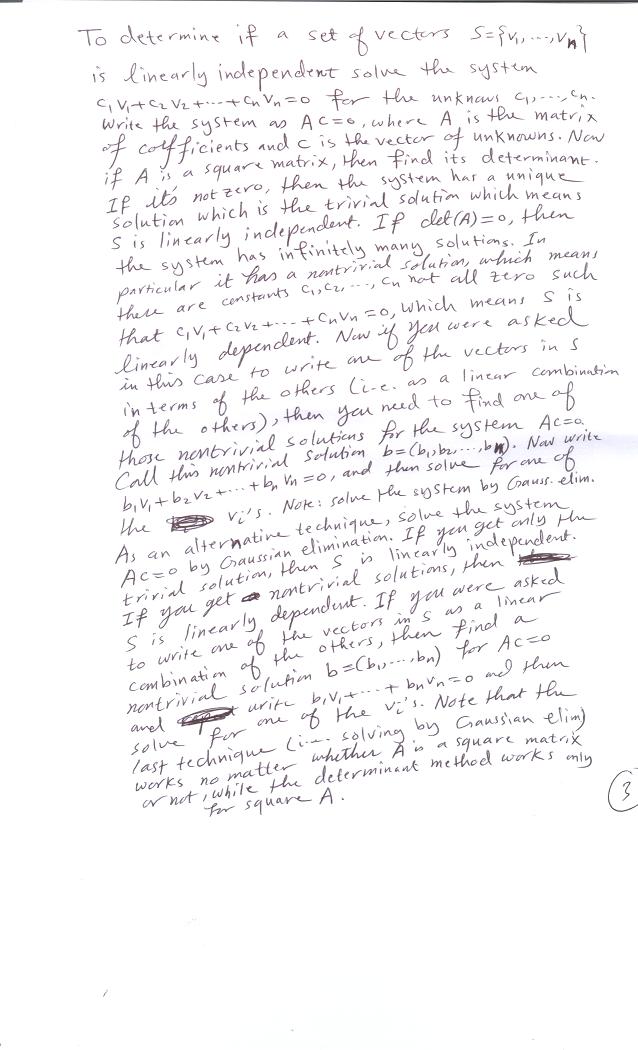 To determine if a set of vectors S={v₁,...,vₙ}
is linearly independent solve the system
c₁v₁+c₂v₂+···+cₙvₙ=0 for the unknowns c₁,...,cₙ.
Write the system as Ac=0, where A is the matrix
of coefficients and c is the vector of unknowns. Now
if A is a square matrix, then find its determinant.
If it's not zero, then the system has a unique
solution which is the trivial solution which means
S is linearly independent. If det(A)=0, then
the system has infinitely many solutions. In
particular it has a nontrivial solution, which means
there are constants c₁,c₂,...,cₙ not all zero such
that c₁v₁+c₂v₂+···+cₙvₙ=0, which means S is
linearly dependent. Now if you were asked
in this case to write one of the vectors in S
in terms of the others (i.e. as a linear combination
of the others), then you need to find one of
those nontrivial solutions for the system Ac=0.
Call this nontrivial solution b=(b₁,b₂,...,bₙ). Now write
b₁v₁+b₂v₂+···+bₙvₙ=0, and then solve for one of
the vᵢ's. Note: solve the system by Gauss. elim.
As an alternative technique, solve the system
Ac=0 by Gaussian elimination. If you get only the
trivial solution, then S is linearly independent.
If you get nontrivial solutions, then
S is linearly dependent. If you were asked
to write one of the vectors in S as a linear
combination of the others, then find a
nontrivial solution b=(b₁,...,bₙ) for Ac=0
and write b₁v₁+···+bₙvₙ=0 and then
solve for one of the vᵢ's. Note that the
last technique (i.e. solving by Gaussian elim)
works no matter whether A is a square matrix
or not, while the determinant method works only
for square A.
3